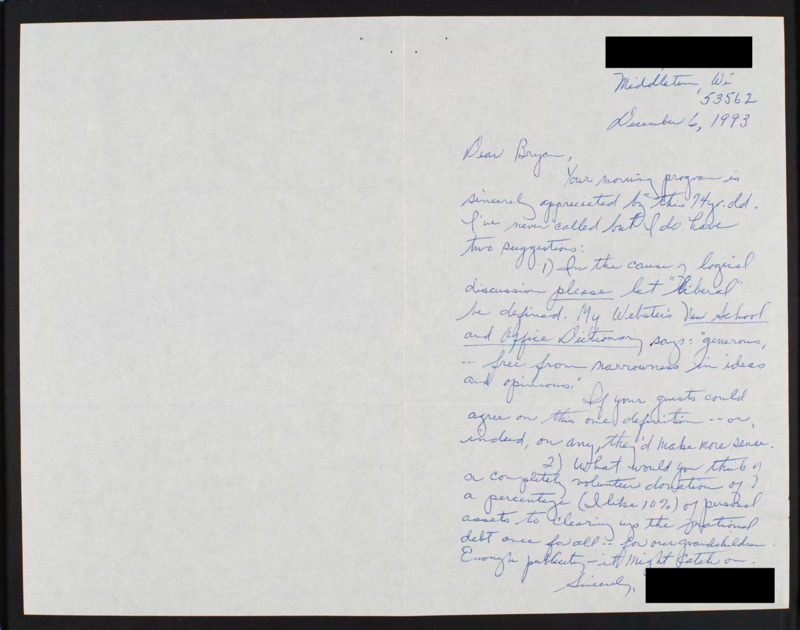 Middleton, Wi
53562
December 6, 1993
Dear Bryan,
Your morning program is
sincerely appreciated by this 74 yr. old.
I've never called but I do have
two suggestions:
1) In the cause of logical
discussion please let "liberal"
be defined. My Webster's New School
and Office Dictionary says: "generous,
-- free from narrowness in ideas
and opinions."
If your guests could
agree on this one definition -- or,
indeed, on any, they'd make more sense.
2) What would you think of
a completely volunteer donation of
a percentage (I like 10%) of personal
assets to clearing up the national
debt once for all -- for our grandchildren.
Enough publicity - it might catch on.
Sincerely,